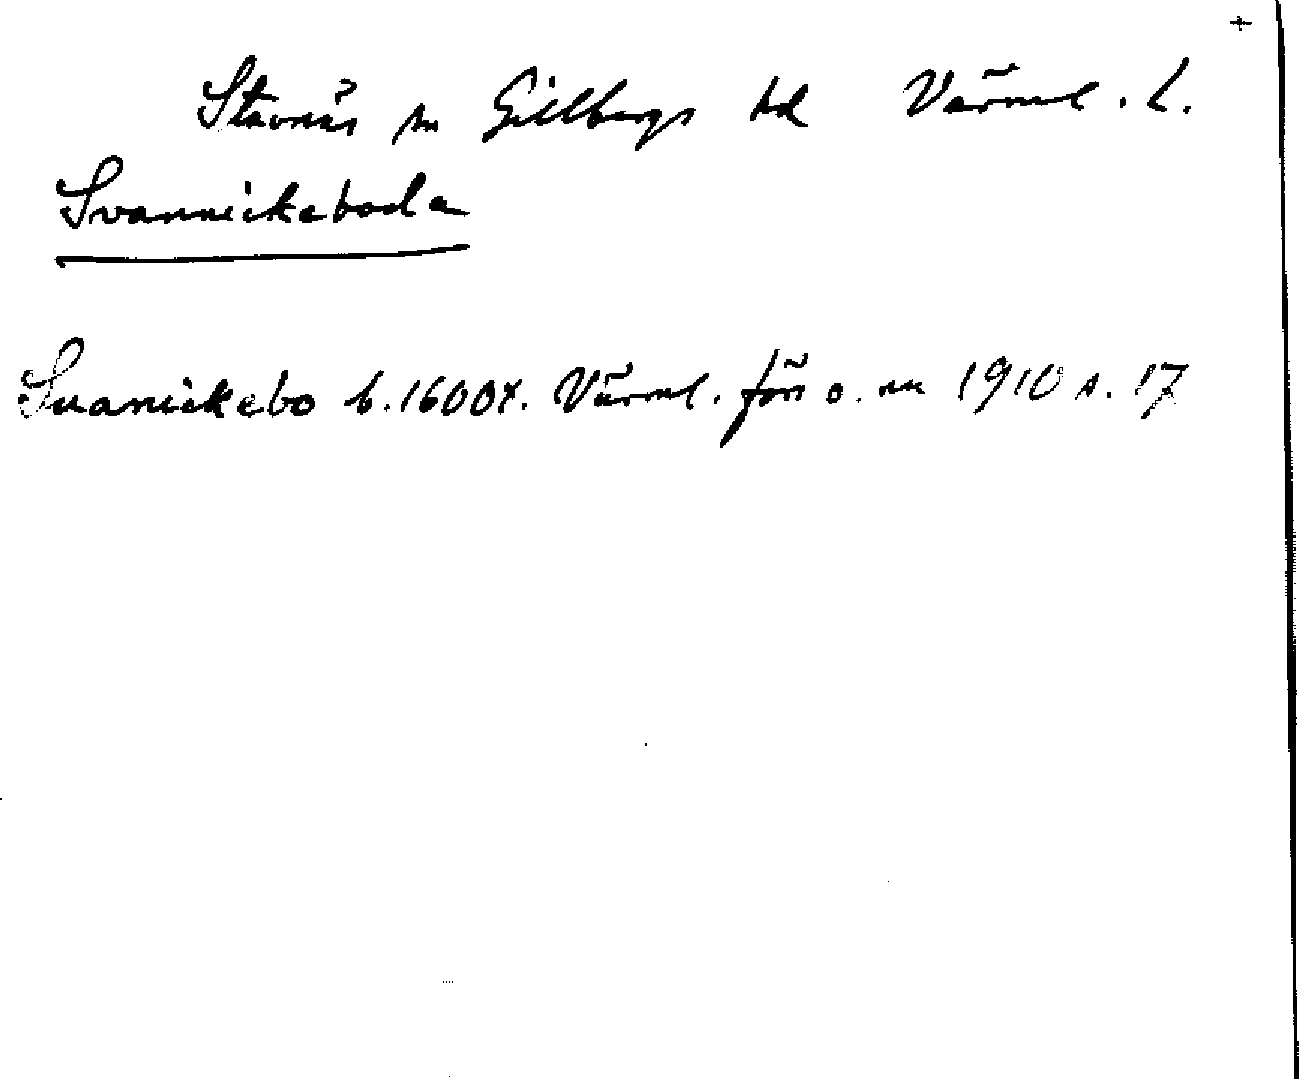 +
Stavnäs sn Gillbergs hd Värml. L.
Svannickeboda
Suanickebo b. 1600 t. Värml. förr o. nu 1910 s. 17